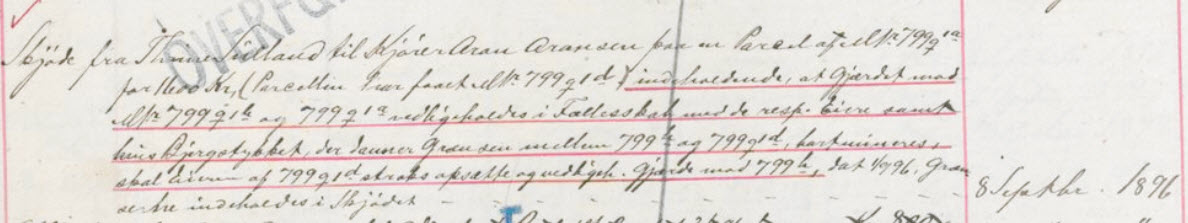 OVERFØ
Skjöde fra Thomas Sulland til Kjörer Aron Aronsen paa en Parcel af M.Nr 799 q 1a
for 1600 Kr, (Parcellen har faaet M.Nr 799 q 1d) indeholdende, at Gjærdet mod
M.Nr 799 q 1b og 799 q 1a vedligeholdes i Fællesskab med de resp. Eiere samt
hvis Bjergstykket, der danner Grænsen mellem 799 h og 799 q 1d, bortmineres,
skal Eieren af 799 q 1d straks opsætte og vedligeh. Gjærde mod 799 h, dat 1/9 96. Græn
serne indeholdes i Skjödet - - - - - - - - -
8 Septbr. 1896